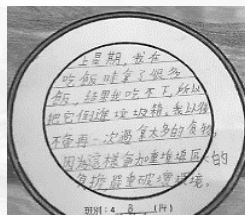 上星期,我在
吃飯時拿了很多
飯,結果我吃不下,所以
把它倒進垃圾箱。我以後
不會再一次過拿太多的食物,
因為這樣會加重堆填區的
負擔,嚴重破壞環境。
班別:4 B (14)